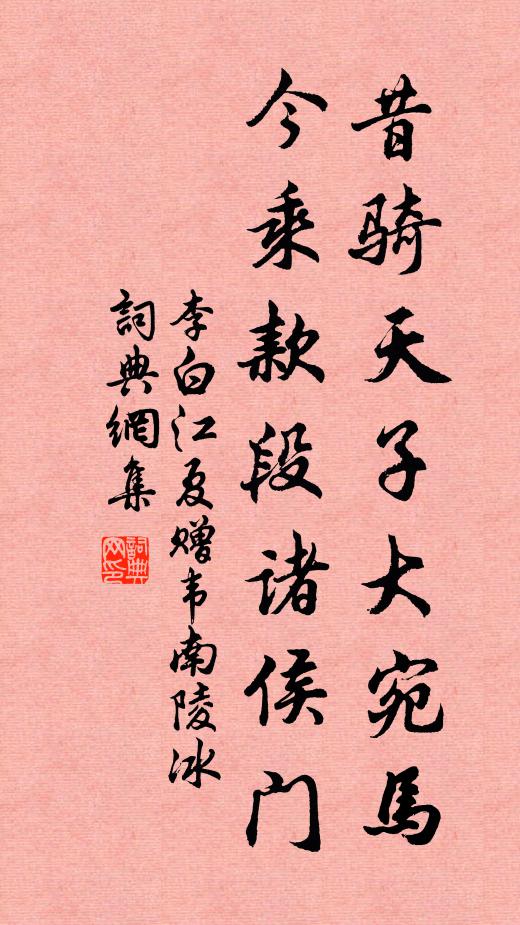 昔骑天子大宛馬
今乘款段诸侯门
李白江夏赠韦南陵冰
詞典網集
詞典网印